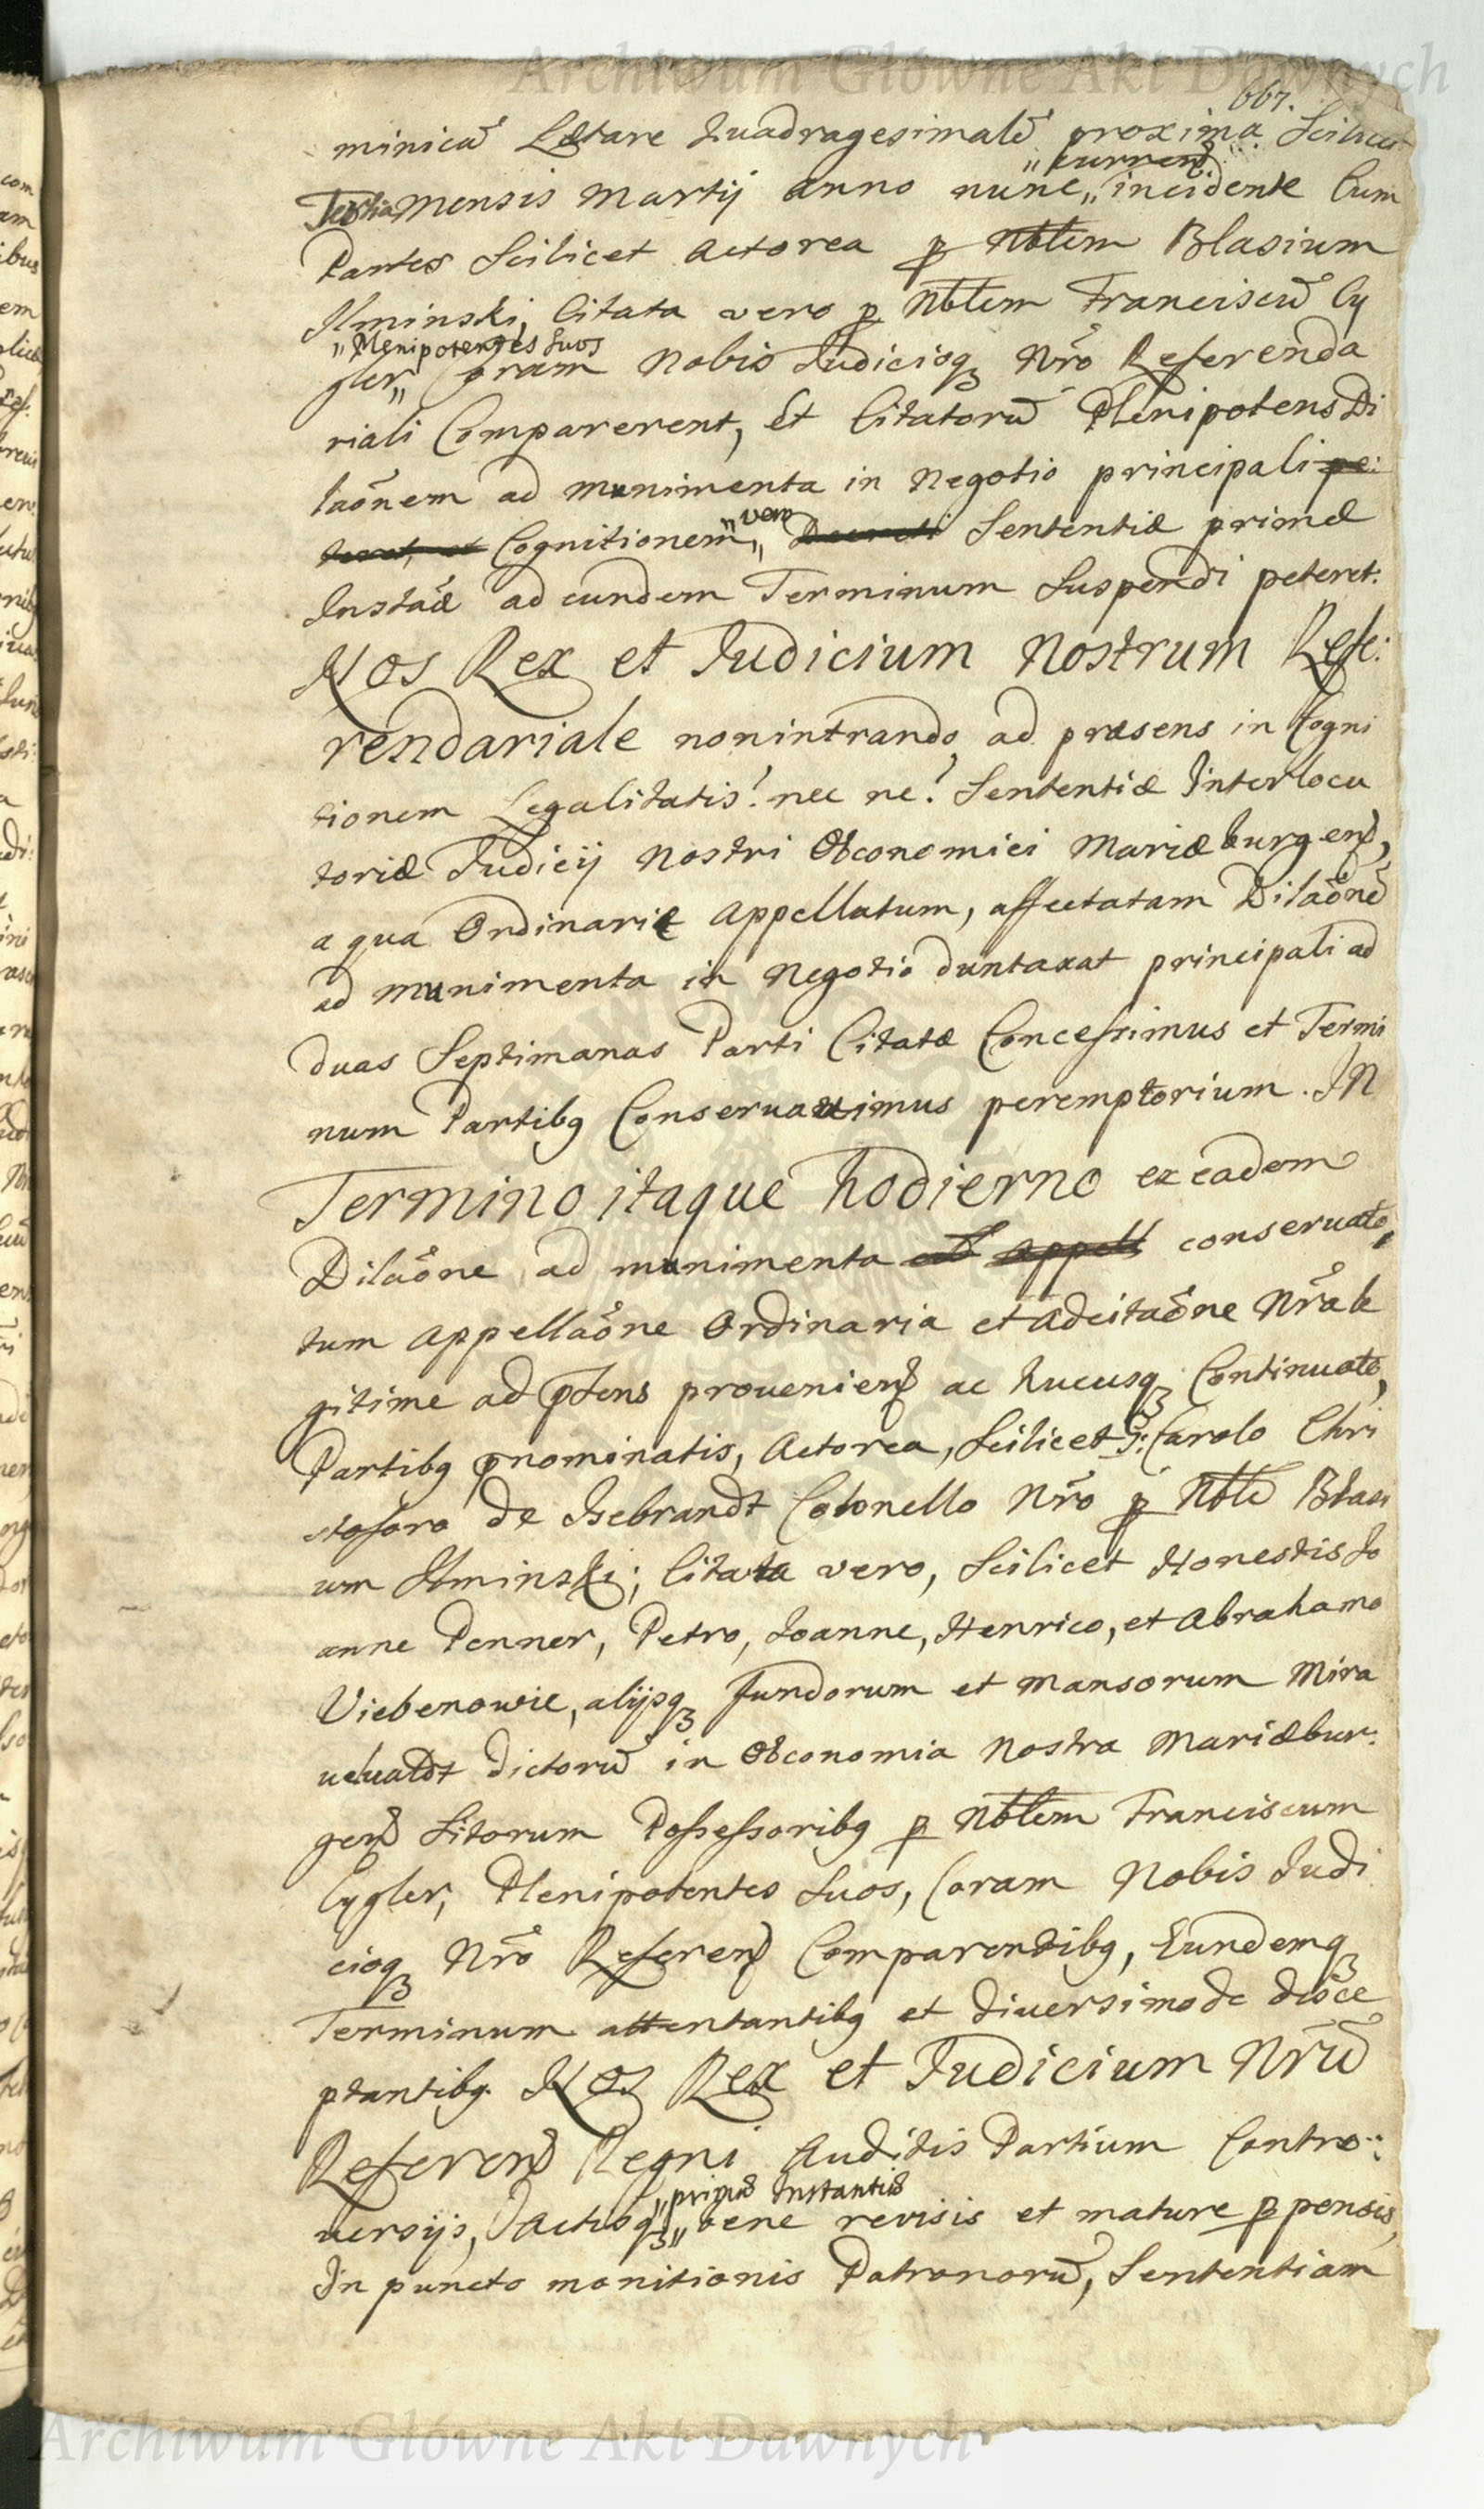 Archiwum Główne Akt Dawnych
667.
minicã Lætare Quadragesimalẽ proxima Scilicet
„currenti
Tertia Mensis Martij anno nunc„ incidente Cum
Partes Scilicet Actorea p Nbtem Blasium
Ilminski, Citata vero p Nbtem Franciscũ Cy
„Plenipotentes Suos
gler„ Coram Nobis Judicioq3 Nrõ Referenda
riali Comparerent, Et Citatorũ Plenipotens Di
laõnem ad munimenta in Negotio principali pe:
terat, et Cognitionem „vero„ Decreti Sententiæ primæ
Instãæ ad eundem Terminum Suspendi peteret.
Nos Rex et Judicium Nostrum Refe:
rendariale nonintrando ad præsens in Cogni
tionem Legalitatis? nec ne? Sententiæ Interlocu
toriæ Judicij Nostri Oeconomici Mariæburgens,
a qua Ordinarie Appellatum, affectatam Dilaõnẽ
ad munimenta in Negotio duntaxat principali ad
duas Septimanas Parti Citatæ Concessimus et Termi
num Partibq Conseruauimus peremptorium. IN
Termino itaque hodierno ex eadem
Dilaõne ad munimenta ab appell conseruato,
tum Appellaõne Ordinaria et Adcitaõne Nrã le
gitime ad ptens prouenien ac hucusq3 Continuato,
Partibq pnominatis, Actorea, Scilicet G: Carolo Chri
stoforo de Isebrandt Colonello Nrõ p Nbtẽ Blasi
um Ilminski; Citata vero, Scilicet Honestis Jo
anne Penner, Petro, Joanne, Henrico, et Abrahamo
Viebenowie, alijsq3 Fundorum et Mansorum Mira
ueluatdt dictorũ in Oeconomia Nostra Mariæbur:
gen Sitorum Possessoribq p Nbtem Franciscum
Cygler, Plenipotentes Suos, Coram Nobis Judi
cioq3 Nrõ Referen Comparentibq, Eundemq3
Terminum attentantibq et diuersimode disce
ptantibq. Nos Rex et Judicium Nrũ
Referen Regni Auditis Partium Contro:
„primæ Instantiæ
uersijs, Actisq3„ bene reuisis et mature p pensis,
In puncto monitionis Patronorũ, Sententiam
Archiwum Główne Akt Dawnych